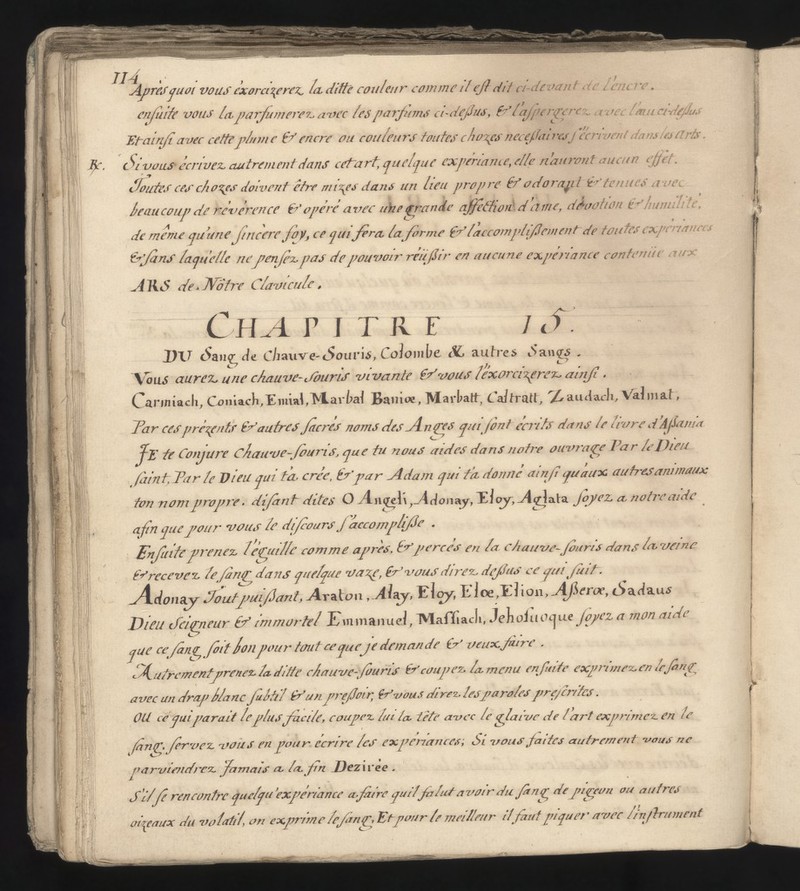 114
Après quoi vous éxorcizerez la ditte couleur comme il est dit ci-devant de l'encre.
ensuite vous la parfumerez avec les parfums ci-dessus, & l'aspergerez avec l'eau ci-dessus
Et ainsi avec cette plume & encre ou couleurs toutes chozes necessaires s'écrivent dans les arts.
℞. Si vous écrivez autrement dans cet art, quelque expériance, elle n'auront aucun effet.
Toutes ces chozes doivent être mizes dans un lieu propre & odorant & tenues avec
beaucoup de révérence & opéré avec une grande affection d'ame, dévotion & humilité.
de même qu'une sincère foy, ce qui fera la forme & l'accomplissement de toutes expériances
& sans laquelle ne pensez pas de pouvoir réüssir en aucune expériance contenüe aux
ARS de Nôtre Clavicule.
CHAPITRE 15.
DU Sang de Chauve-Souris, Colombe & autres Sangs.
Vous aurez une chauve-souris vivante & vous l'éxorcizerez ainsi.
Carmiach, Coniach, Emial, Marbal Baniœ, Marbatt, Caltratt, Zaudach, Valmat,
Par ces prézents & autres sacrés noms des Anges qui sont écrits dans le livre d'Assania
JE te Conjure Chauve-souris, que tu nous aides dans notre ouvrage Par le Dieu
saint, Par le Dieu qui t'a crée, & par Adam qui t'a donné ainsi qu'aux autres animaux
ton nom propre. disant dites O Angeli, Adonay, Eloy, Aglata soyez a notre aide
afin que pour vous le discours s'accomplisse.
Ensuite prenez l'éguille comme après, & percés en la chauve-souris dans la veine
& recevez le sang dans quelque vaze, & vous direz dessus ce qui suit.
Adonay Tout puissant, Araton, Alay, Eloy, Eloe, Elion, Asserœ, Sadaus
Dieu Seigneur & immortel Emmanuel, Massiach, Jehosuoque soyez a mon aide
que ce sang soit bon pour tout ce que je demande & veux faire.
Autrement prenez la ditte chauve-souris & coupez la menu ensuite exprimez en le sang
avec un drap blanc subtil & un pressoir, & vous direz les paroles prescrites.
OU ce qui parait le plus facile, coupez lui la tête avec le glaive de l'art exprimez en le
sang, servez vous en pour écrire les expériances, Si vous faites autrement vous ne
parviendrez Jamais a la fin Dezirée.
S'il se rencontre quelqu'expériance a faire qu'il falut avoir du sang de pigeon ou autres
oizeaux du volatil, on exprime le sang, Et pour le meilleur il faut piquer avec l'instrument